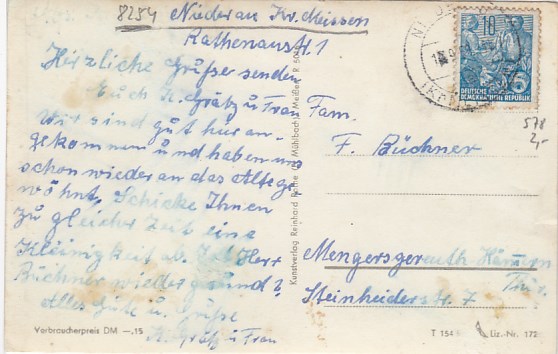 8254 Niederau Kr. Meissen
Rathenaustr 1
Herzliche Grüße senden
Euch K. Grätz u Frau
Wir sind gut hier an-
gekommen und haben uns
schon wieder an das Alte ge
wöhnt, Schicke Ihnen
zu gleicher Zeit eine
Kleinigkeit ab. Ist Herr
Büchner wieder gesund?
Alles Gute u. Grüße
K. Grätz u Frau
Verbraucherpreis DM —.15
Kunstverlag Reinhard Rothe
Mühlbach
Meißen R
10
DEUTSCHE
DEMOKRATISCHE REPUBLIK
578
2,-
Fam.
F. Büchner
Mengersgereuth Hämmern
Thür.
Steinheiderstr. 7
T 154
Liz.-Nr. 172